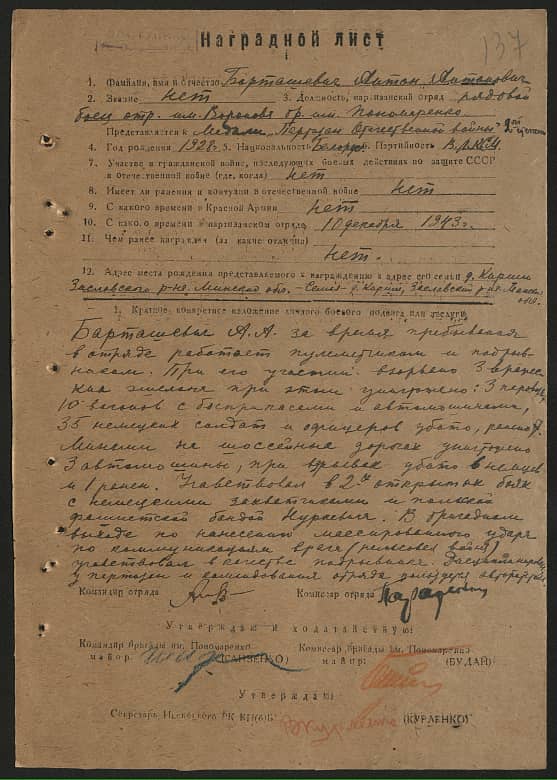 137
Наградной лист
1. Фамилия, имя и отчество Барташевич Антон Антонович
2. Звание нет 3. Должность, партизанский отряд рядовой
боец отр. им. Воронова бр. им. Пономаренко
Представляется к Медали "Партизан Отечественной войны" 2ой степени
4. Год рождения 1928 г. 5. Национальность Белорус 6. Партийность ВЛКСМ
7. Участие в гражданской войне, последующих боевых действиях по защите СССР
и Отечественной войне (где, когда) нет
8. Имеет ли ранения и контузии в отечественной войне нет
9. С какого времени в Красной Армии нет
10. С какого времени в партизанском отряде 10 декабря 1943 г.
11. Чем ранее награжден (за какие отличия)
нет.
12. Адрес места рождения представляемого к награждению и адрес его семьи д.
Заславского р-на Минской обл. Семья - д. Заславский р-н Минской
обл.
1. Краткое, конкретное изложение личного боевого подвига или заслуги
Барташевич А. А. за время пребывания
в отряде работает пулеметчиком и подрыв-
ником. При его участии взорвано 3 вражес-
ких эшелона при этом уничтожено: 3 паровоза,
10 вагонов с боеприпасами и автомашинами,
35 немецких солдат и офицеров убито,
на шоссейных дорогах уничтожено
3 автомашины, при взрывах убито 8 немцев
и 1 ранен. Участвовал в 2х открытых боях
с немецкими захватчиками и польской
фашистской бандой В бригадном
выходе по нанесению массированного удара
по коммуникациям врага (рельсовая война)
участвовал в качестве подрывника. Дисциплинирован,
у партизан и командования отряда пользуется авторитетом.
Командир отряда Комиссар отряда
Утверждаю и ходатайствую:
Командир бригады им. Пономаренко Комиссар бригады им. Пономаренко
майор: (САНЗЕНКО) майор: (БУДАЙ)
Утверждаю:
Секретарь РК КП(б)Б (КУРЛЕНКО)